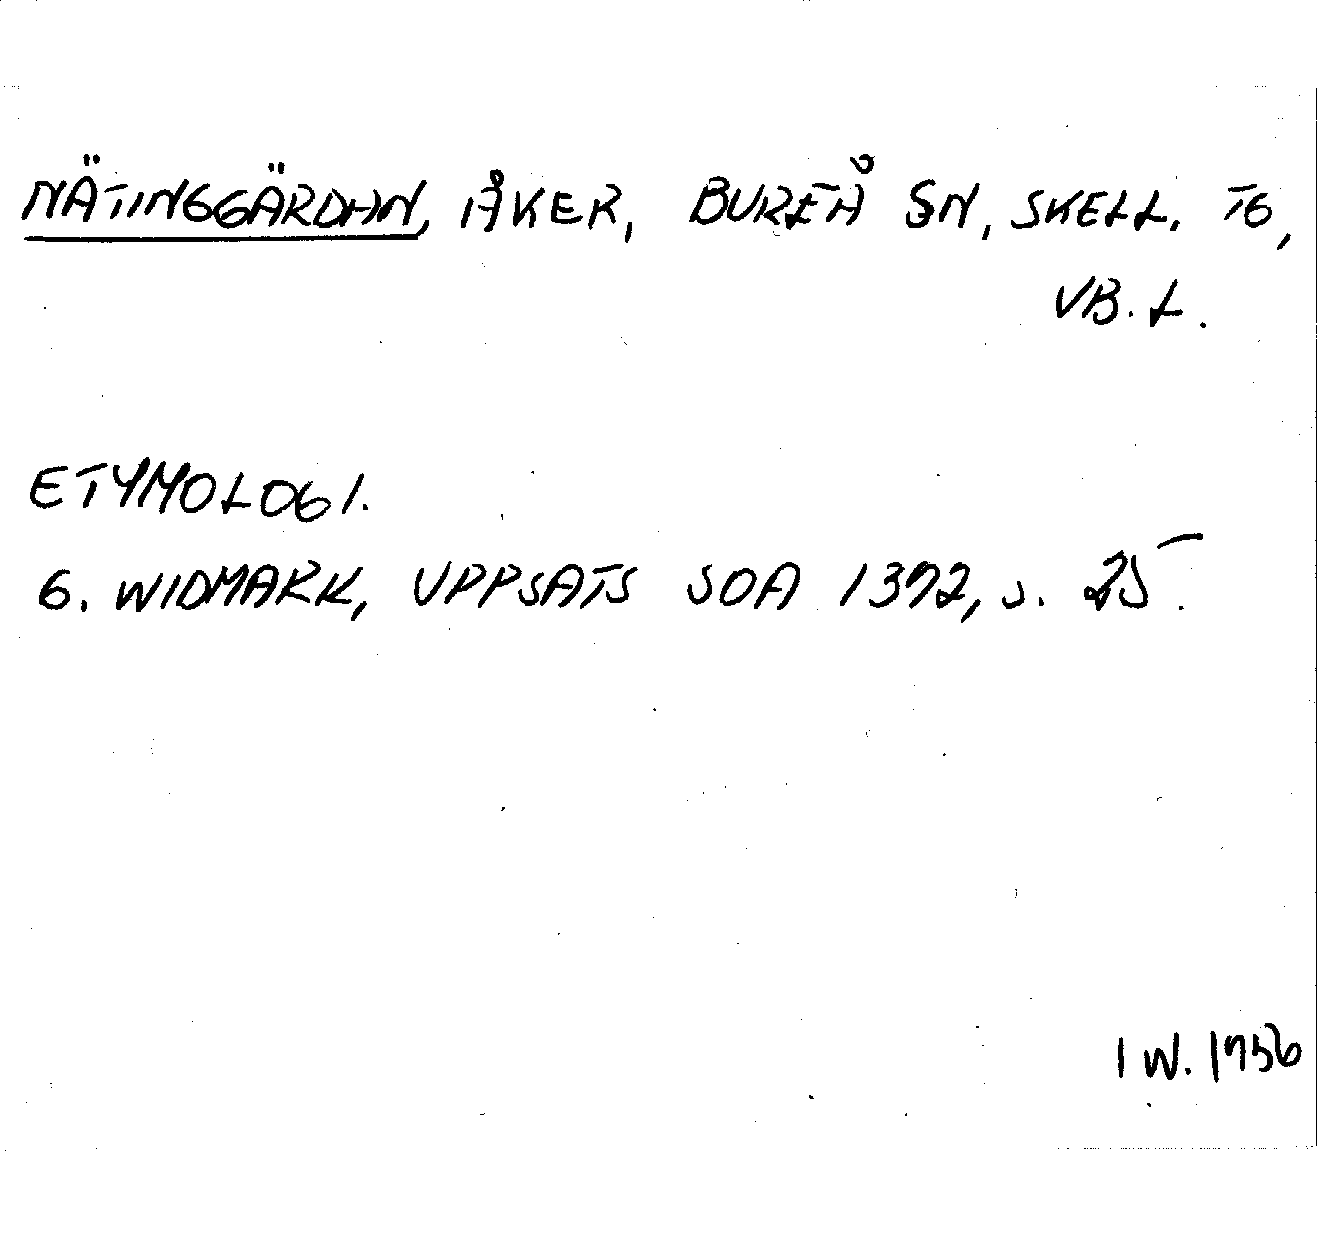 NÄTINGGÄRDAN, ÅKER, BUREÅ SN, SKELL. TG,
VB. L.
ETYMOLOGI.
G. WIDMARK, UPPSATS SOA 1372, s. 25.
I W. 1956